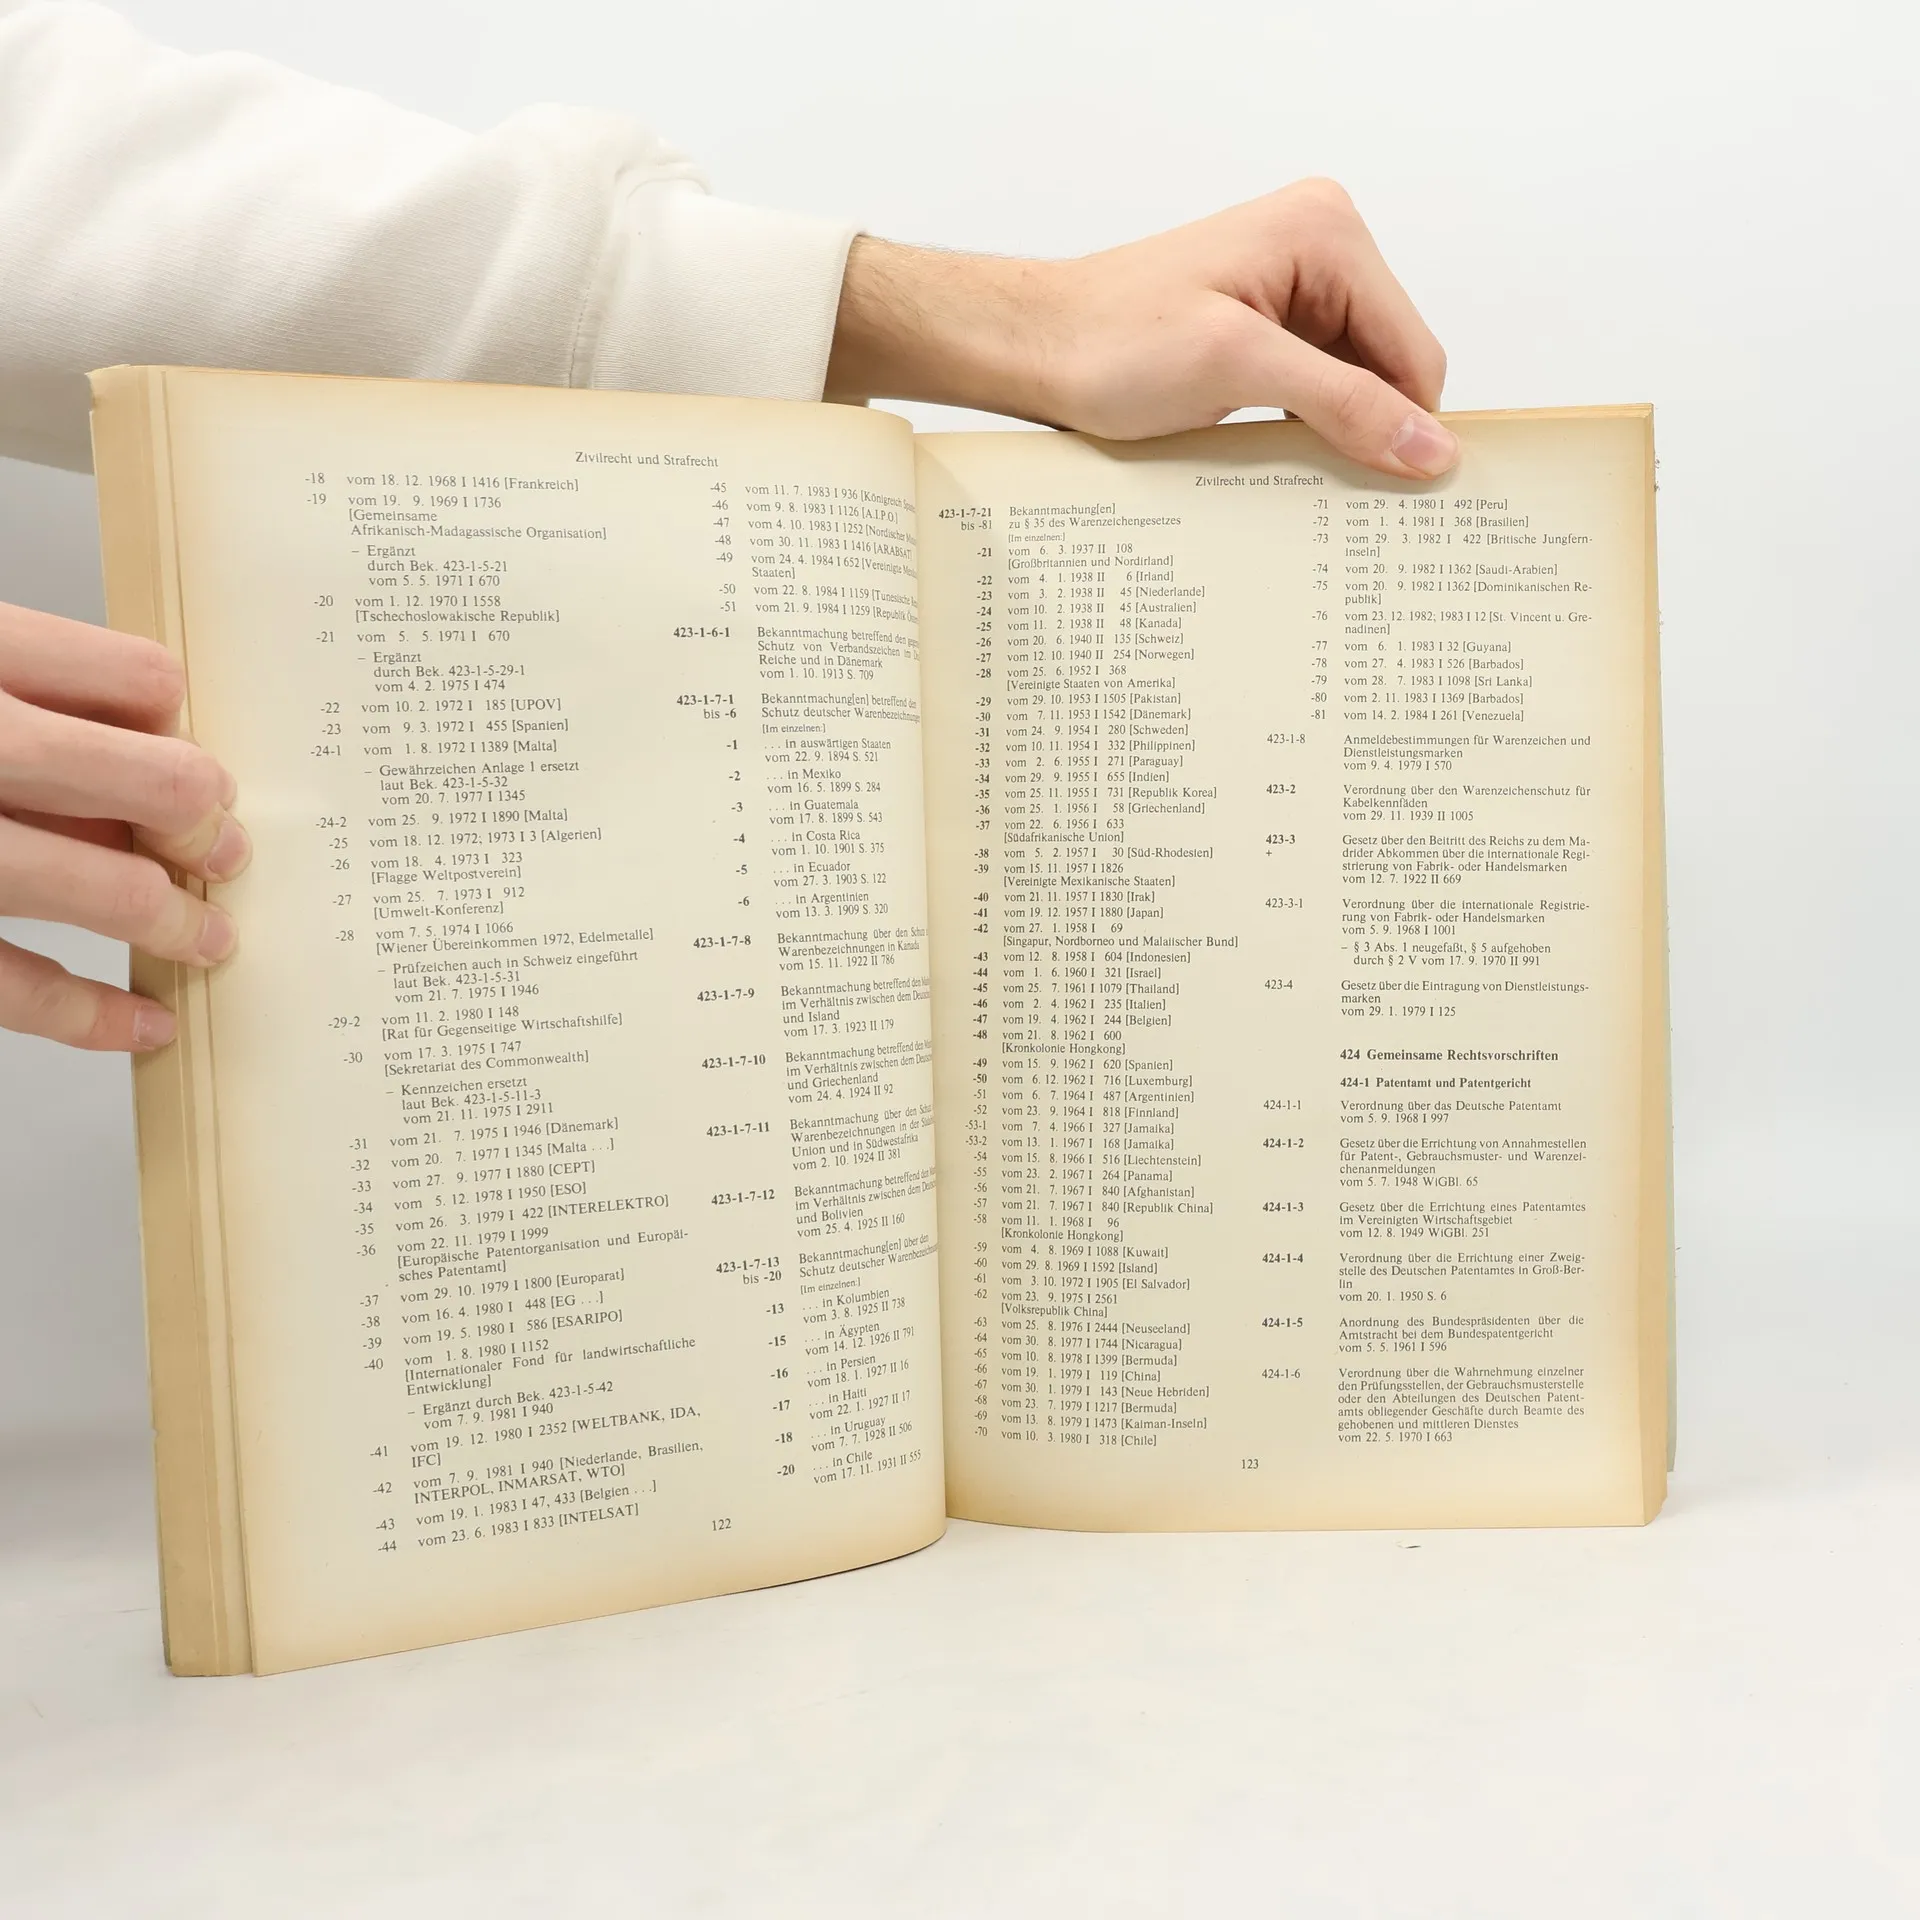 Zivilrecht und Strafrecht
-18 vom 18. 12. 1968 I 1416 [Frankreich]
-19 vom 19. 9. 1969 I 1736
[Gemeinsame
Afrikanisch-Madagassische Organisation]
– Ergänzt
durch Bek. 423-1-5-21
vom 5. 5. 1971 I 670
-20 vom 1. 12. 1970 I 1558
[Tschechoslowakische Republik]
-21 vom 5. 5. 1971 I 670
– Ergänzt
durch Bek. 423-1-5-29-1
vom 4. 2. 1975 I 474
-22 vom 10. 2. 1972 I 185 [UPOV]
-23 vom 9. 3. 1972 I 455 [Spanien]
-24-1 vom 1. 8. 1972 I 1389 [Malta]
– Gewährzeichen Anlage 1 ersetzt
laut Bek. 423-1-5-32
vom 20. 7. 1977 I 1345
-24-2 vom 25. 9. 1972 I 1890 [Malta]
-25 vom 18. 12. 1972; 1973 I 3 [Algerien]
-26 vom 18. 4. 1973 I 323
[Flagge Weltpostverein]
-27 vom 25. 7. 1973 I 912
[Umwelt-Konferenz]
-28 vom 7. 5. 1974 I 1066
[Wiener Übereinkommen 1972, Edelmetalle]
– Prüfzeichen auch in Schweiz eingeführt
laut Bek. 423-1-5-31
vom 21. 7. 1975 I 1946
-29-2 vom 11. 2. 1980 I 148
[Rat für Gegenseitige Wirtschaftshilfe]
-30 vom 17. 3. 1975 I 747
[Sekretariat des Commonwealth]
– Kennzeichen ersetzt
laut Bek. 423-1-5-11-3
vom 21. 11. 1975 I 2911
-31 vom 21. 7. 1975 I 1946 [Dänemark]
-32 vom 20. 7. 1977 I 1345 [Malta . . .]
-33 vom 27. 9. 1977 I 1880 [CEPT]
-34 vom 5. 12. 1978 I 1950 [ESO]
-35 vom 26. 3. 1979 I 422 [INTERELEKTRO]
-36 vom 22. 11. 1979 I 1999
[Europäische Patentorganisation und Europäi-
sches Patentamt]
-37 vom 29. 10. 1979 I 1800 [Europarat]
-38 vom 16. 4. 1980 I 448 [EG . . .]
-39 vom 19. 5. 1980 I 586 [ESARIPO]
-40 vom 1. 8. 1980 I 1152
[Internationaler Fond für landwirtschaftliche
Entwicklung]
– Ergänzt durch Bek. 423-1-5-42
vom 7. 9. 1981 I 940
-41 vom 19. 12. 1980 I 2352 [WELTBANK, IDA,
IFC]
-42 vom 7. 9. 1981 I 940 [Niederlande, Brasilien,
INTERPOL, INMARSAT, WTO]
-43 vom 19. 1. 1983 I 47, 433 [Belgien . . .]
-44 vom 23. 6. 1983 I 833 [INTELSAT]
-45 vom 11. 7. 1983 I 936 [Königreich
-46 vom 9. 8. 1983 I 1126 [A.I.P.O.]
-47 vom 4. 10. 1983 I 1252 [Nordischer
-48 vom 30. 11. 1983 I 1416 [ARABSAT]
-49 vom 24. 4. 1984 I 652 [Vereinigte
Staaten]
-50 vom 22. 8. 1984 I 1159 [Tunesische
-51 vom 21. 9. 1984 I 1259 [Republik
423-1-6-1 Bekanntmachung betreffend den
Schutz von Verbandszeichen im
Reiche und in Dänemark
vom 1. 10. 1913 S. 709
423-1-7-1 Bekanntmachung[en] betreffend den
bis -6 Schutz deutscher Warenbezeichnungen
[Im einzelnen:]
-1 . . . in auswärtigen Staaten
vom 22. 9. 1894 S. 521
-2 . . . in Mexiko
vom 16. 5. 1899 S. 284
-3 . . . in Guatemala
vom 17. 8. 1899 S. 543
-4 . . . in Costa Rica
vom 1. 10. 1901 S. 375
-5 . . . in Ecuador
vom 27. 3. 1903 S. 122
-6 . . . in Argentinien
vom 13. 3. 1909 S. 320
423-1-7-8 Bekanntmachung über den Schutz
Warenbezeichnungen in Kanada
vom 15. 11. 1922 II 786
423-1-7-9 Bekanntmachung betreffend den
im Verhältnis zwischen dem
und Island
vom 17. 3. 1923 II 179
423-1-7-10 Bekanntmachung betreffend den
im Verhältnis zwischen dem
und Griechenland
vom 24. 4. 1924 II 92
423-1-7-11 Bekanntmachung über den Schutz
Warenbezeichnungen in der
Union und in Südwestafrika
vom 2. 10. 1924 II 381
423-1-7-12 Bekanntmachung betreffend den
im Verhältnis zwischen dem
und Bolivien
vom 25. 4. 1925 II 160
423-1-7-13 Bekanntmachung[en] über den
bis -20 Schutz deutscher Warenbezeichnungen
[Im einzelnen:]
-13 . . . in Kolumbien
vom 3. 8. 1925 II 738
-15 . . . in Ägypten
vom 14. 12. 1926 II 791
-16 . . . in Persien
vom 18. 1. 1927 II 16
-17 . . . in Haiti
vom 22. 1. 1927 II 17
-18 . . . in Uruguay
vom 7. 7. 1928 II 506
-20 . . . in Chile
vom 17. 11. 1931 II 555
122
Zivilrecht und Strafrecht
423-1-7-21 Bekanntmachung[en]
bis -81 zu § 35 des Warenzeichengesetzes
[Im einzelnen:]
-21 vom 6. 3. 1937 II 108
[Großbritannien und Nordirland]
-22 vom 4. 1. 1938 II 6 [Irland]
-23 vom 3. 2. 1938 II 45 [Niederlande]
-24 vom 10. 2. 1938 II 45 [Australien]
-25 vom 11. 2. 1938 II 48 [Kanada]
-26 vom 20. 6. 1940 II 135 [Schweiz]
-27 vom 12. 10. 1940 II 254 [Norwegen]
-28 vom 25. 6. 1952 I 368
[Vereinigte Staaten von Amerika]
-29 vom 29. 10. 1953 I 1505 [Pakistan]
-30 vom 7. 11. 1953 I 1542 [Dänemark]
-31 vom 24. 9. 1954 I 280 [Schweden]
-32 vom 10. 11. 1954 I 332 [Philippinen]
-33 vom 2. 6. 1955 I 271 [Paraguay]
-34 vom 29. 9. 1955 I 655 [Indien]
-35 vom 25. 11. 1955 I 731 [Republik Korea]
-36 vom 25. 1. 1956 I 58 [Griechenland]
-37 vom 22. 6. 1956 I 633
[Südafrikanische Union]
-38 vom 5. 2. 1957 I 30 [Süd-Rhodesien]
-39 vom 15. 11. 1957 I 1826
[Vereinigte Mexikanische Staaten]
-40 vom 21. 11. 1957 I 1830 [Irak]
-41 vom 19. 12. 1957 I 1880 [Japan]
-42 vom 27. 1. 1958 I 69
[Singapur, Nordborneo und Malaiischer Bund]
-43 vom 12. 8. 1958 I 604 [Indonesien]
-44 vom 1. 6. 1960 I 321 [Israel]
-45 vom 25. 7. 1961 I 1079 [Thailand]
-46 vom 2. 4. 1962 I 235 [Italien]
-47 vom 19. 4. 1962 I 244 [Belgien]
-48 vom 21. 8. 1962 I 600
[Kronkolonie Hongkong]
-49 vom 15. 9. 1962 I 620 [Spanien]
-50 vom 6. 12. 1962 I 716 [Luxemburg]
-51 vom 6. 7. 1964 I 487 [Argentinien]
-52 vom 23. 9. 1964 I 818 [Finnland]
-53-1 vom 7. 4. 1966 I 327 [Jamaika]
-53-2 vom 13. 1. 1967 I 168 [Jamaika]
-54 vom 15. 8. 1966 I 516 [Liechtenstein]
-55 vom 23. 2. 1967 I 264 [Panama]
-56 vom 21. 7. 1967 I 840 [Afghanistan]
-57 vom 21. 7. 1967 I 840 [Republik China]
-58 vom 11. 1. 1968 I 96
[Kronkolonie Hongkong]
-59 vom 4. 8. 1969 I 1088 [Kuwait]
-60 vom 29. 8. 1969 I 1592 [Island]
-61 vom 3. 10. 1972 I 1905 [El Salvador]
-62 vom 23. 9. 1975 I 2561
[Volksrepublik China]
-63 vom 25. 8. 1976 I 2444 [Neuseeland]
-64 vom 30. 8. 1977 I 1744 [Nicaragua]
-65 vom 10. 8. 1978 I 1399 [Bermuda]
-66 vom 19. 1. 1979 I 119 [China]
-67 vom 30. 1. 1979 I 143 [Neue Hebriden]
-68 vom 23. 7. 1979 I 1217 [Bermuda]
-69 vom 13. 8. 1979 I 1473 [Kaiman-Inseln]
-70 vom 10. 3. 1980 I 318 [Chile]
-71 vom 29. 4. 1980 I 492 [Peru]
-72 vom 1. 4. 1981 I 368 [Brasilien]
-73 vom 29. 3. 1982 I 422 [Britische Jungfern-
inseln]
-74 vom 20. 9. 1982 I 1362 [Saudi-Arabien]
-75 vom 20. 9. 1982 I 1362 [Dominikanischen Re-
publik]
-76 vom 23. 12. 1982; 1983 I 12 [St. Vincent u. Gre-
nadinen]
-77 vom 6. 1. 1983 I 32 [Guyana]
-78 vom 27. 4. 1983 I 526 [Barbados]
-79 vom 28. 7. 1983 I 1098 [Sri Lanka]
-80 vom 2. 11. 1983 I 1369 [Barbados]
-81 vom 14. 2. 1984 I 261 [Venezuela]
423-1-8 Anmeldebestimmungen für Warenzeichen und
Dienstleistungsmarken
vom 9. 4. 1979 I 570
423-2 Verordnung über den Warenzeichenschutz für
Kabelkennfäden
vom 29. 11. 1939 II 1005
423-3 Gesetz über den Beitritt des Reichs zu dem Ma-
+ drider Abkommen über die internationale Regi-
strierung von Fabrik- oder Handelsmarken
vom 12. 7. 1922 II 669
423-3-1 Verordnung über die internationale Registrie-
rung von Fabrik- oder Handelsmarken
vom 5. 9. 1968 I 1001
– § 3 Abs. 1 neugefaßt, § 5 aufgehoben
durch § 2 V vom 17. 9. 1970 II 991
423-4 Gesetz über die Eintragung von Dienstleistungs-
marken
vom 29. 1. 1979 I 125
424 Gemeinsame Rechtsvorschriften
424-1 Patentamt und Patentgericht
424-1-1 Verordnung über das Deutsche Patentamt
vom 5. 9. 1968 I 997
424-1-2 Gesetz über die Errichtung von Annahmestellen
für Patent-, Gebrauchsmuster- und Warenzei-
chenanmeldungen
vom 5. 7. 1948 WiGBl. 65
424-1-3 Gesetz über die Errichtung eines Patentamtes
im Vereinigten Wirtschaftsgebiet
vom 12. 8. 1949 WiGBl. 251
424-1-4 Verordnung über die Errichtung einer Zweig-
stelle des Deutschen Patentamtes in Groß-Ber-
lin
vom 20. 1. 1950 S. 6
424-1-5 Anordnung des Bundespräsidenten über die
Amtstracht bei dem Bundespatentgericht
vom 5. 5. 1961 I 596
424-1-6 Verordnung über die Wahrnehmung einzelner
den Prüfungsstellen, der Gebrauchsmusterstelle
oder den Abteilungen des Deutschen Patent-
amts obliegender Geschäfte durch Beamte des
gehobenen und mittleren Dienstes
vom 22. 5. 1970 I 663
123